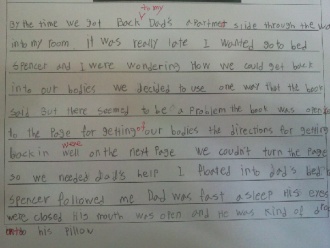 to my
By the time we got Back Dad's apartment slide through the wa
into my room It was really late I wanted go to bed
Spencer and I were wondering How we could get back
into our bodies we decided to use one way that the book
said But there seemed to be a problem the book was opened
to the Page for getting of our bodies the directions for getting
were
back in well on the next Page we coudn't turn the Page
so we needed dad's help I floated into dad's bed
spencer followed me Dad was fast asleep His eyes
were closed His mouth was open and he was kind of
onto his pillow